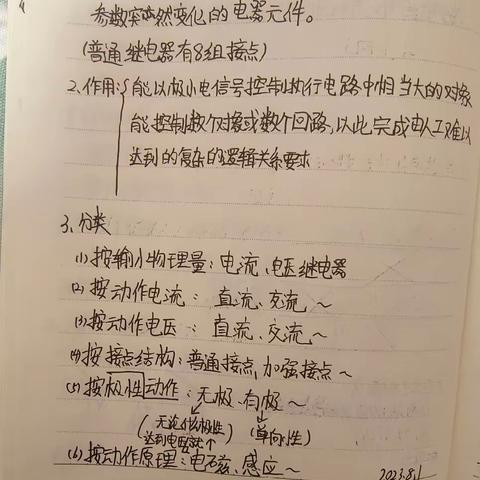 参数突然变化的电器元件。
(普通继电器有8组接点)
2、作用: 能以极小电信号控制执行电路中相当大的对象
能控制数个对象或数个回路,以此完成由人工难以
达到的复杂的逻辑关系要求
3、分类
(1)按输入物理量:电流、电压继电器
(2)按动作电流: 直流、交流~
(3)按动作电压: 直流、交流~
(4)按接点结构:普通接点,加强接点~
(5)按极性动作:无极、有极~
(无论什么极性 达到电压就↑) (单向性)
(6)按动作原理:电磁、感应~
2023.8.1